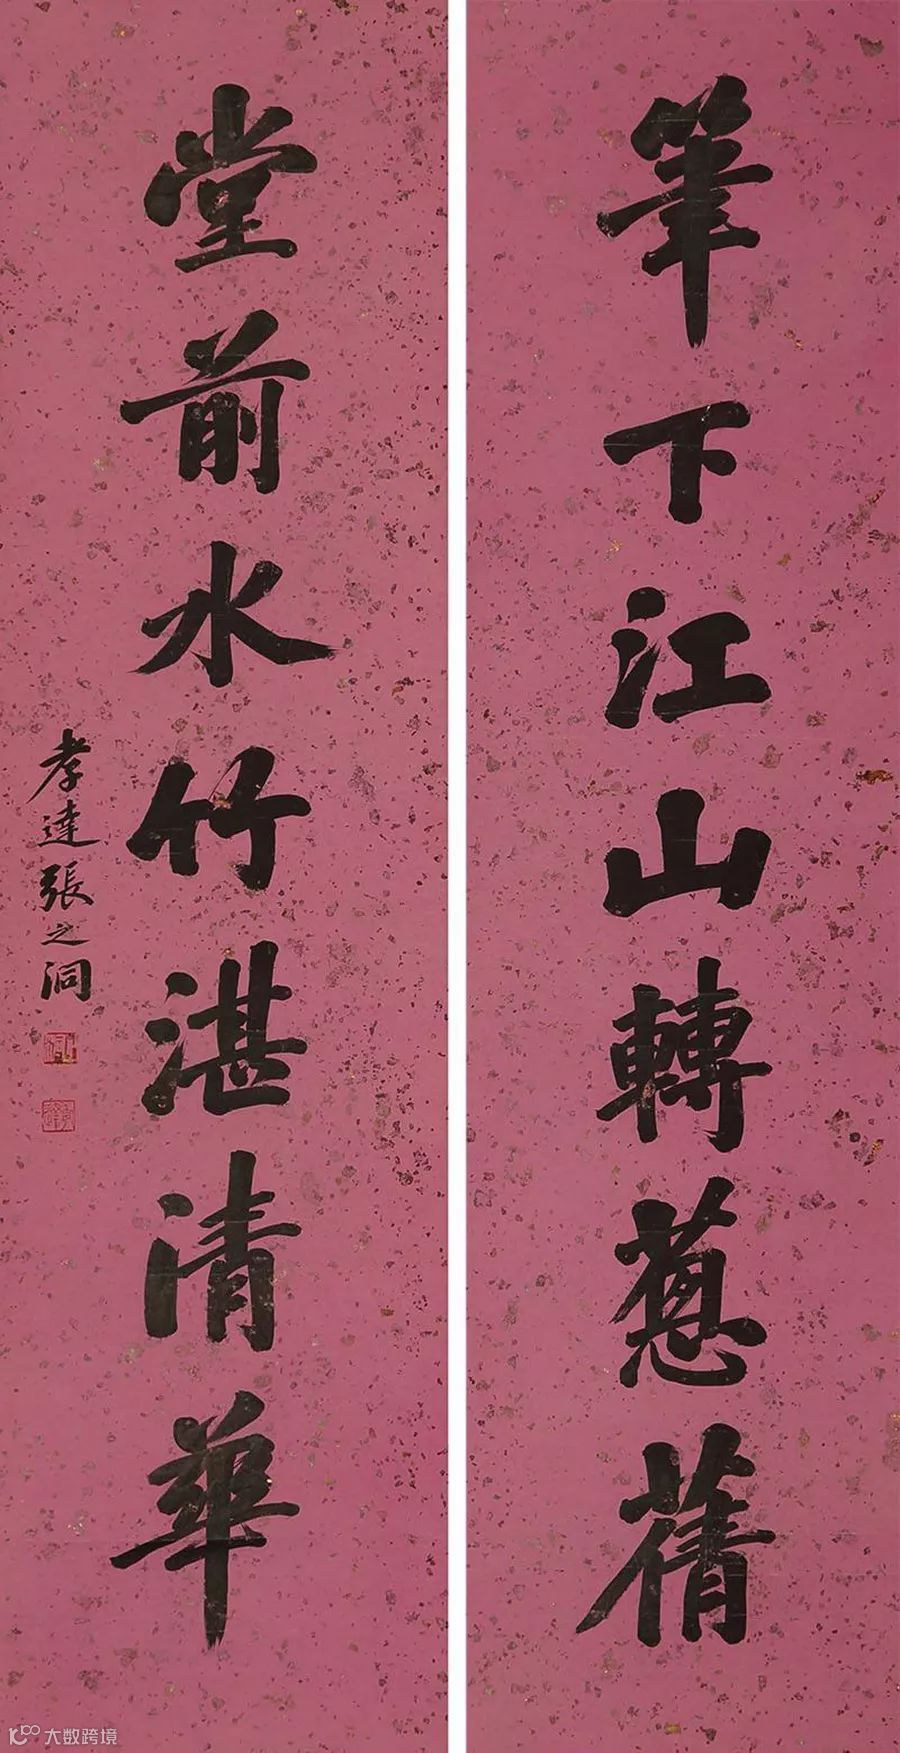 筆下江山轉蔥蒨
堂前水竹湛清華
孝達張之洞
大数跨境